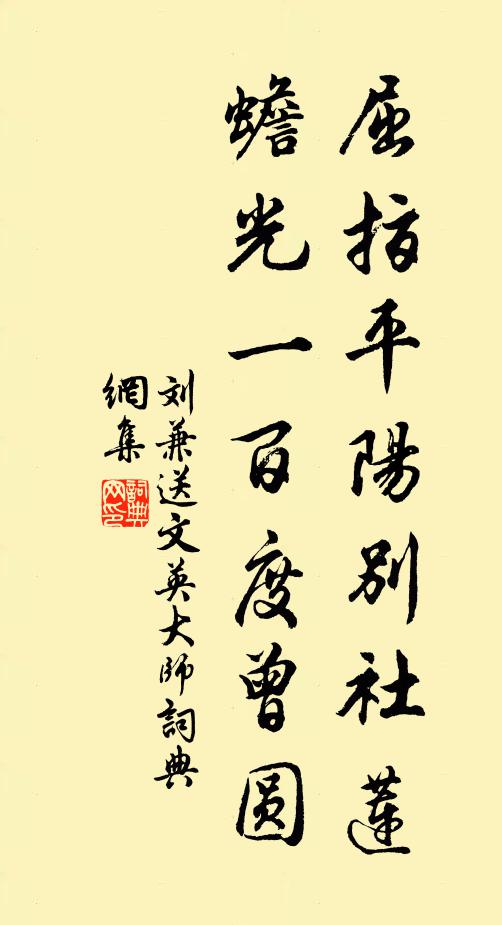 屈指平陽别社蓮
蟾光一百度曾圆
刘兼送文英大師詞典
網集
詞典
网印